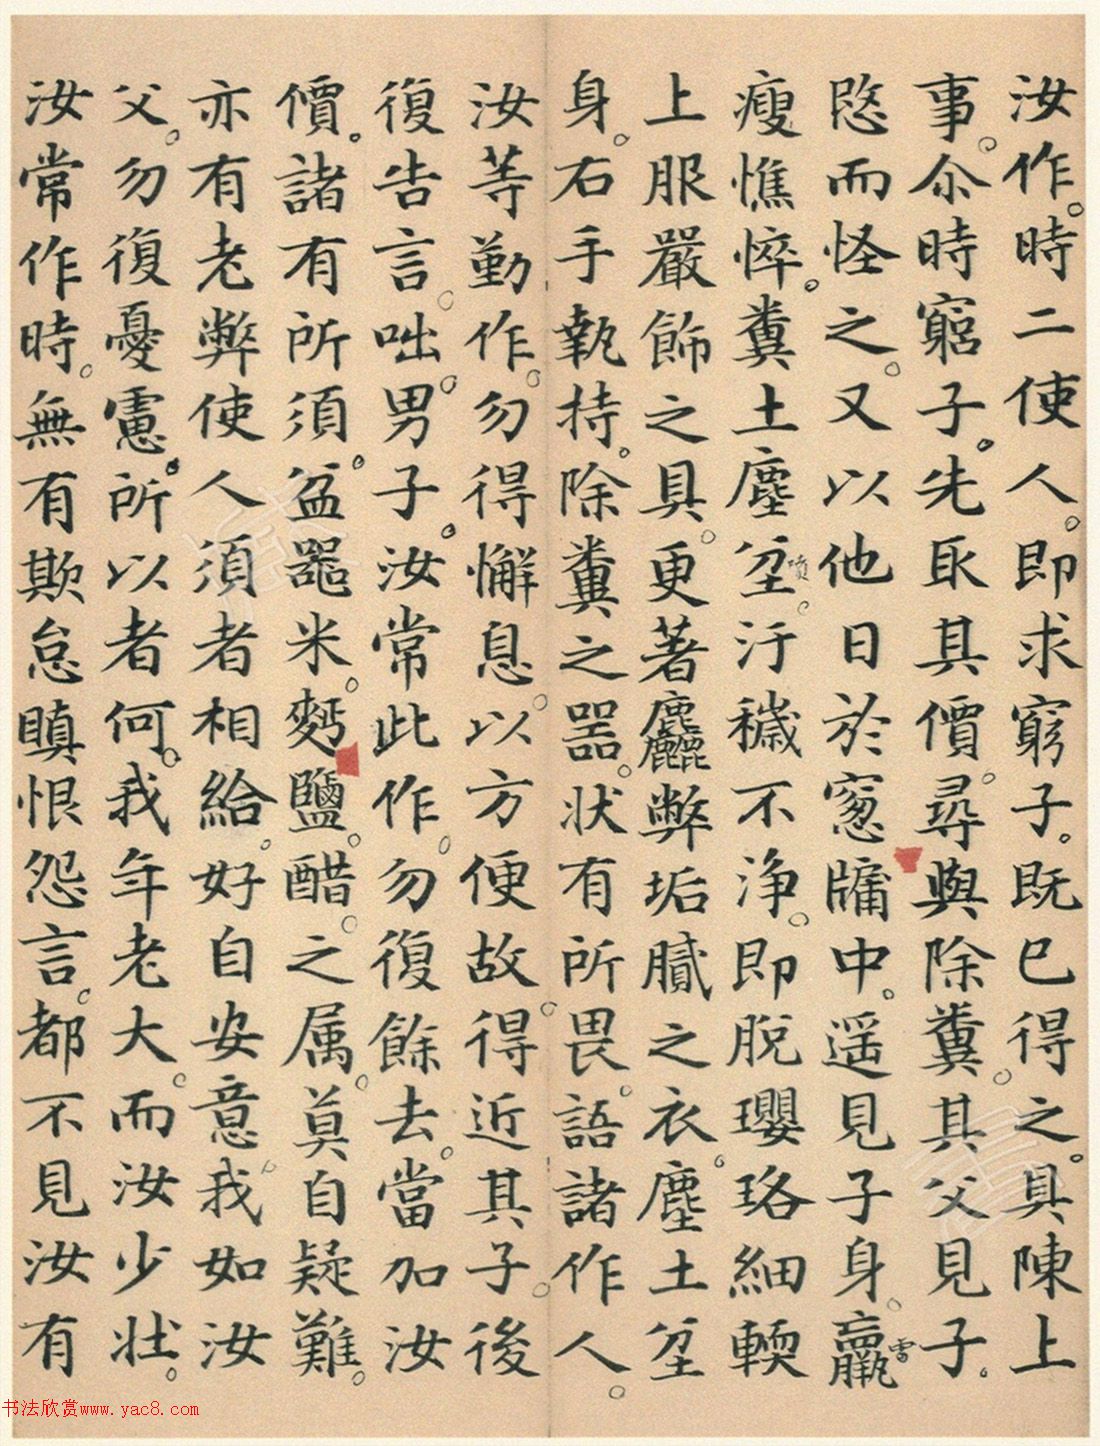 汝作。時二使人。即求窮子。既已得之。具陳上
事。尒時窮子。先取其價。尋與除糞。其父見子。
愍而怪之。又以他日於窓牖中。遥見子身。羸雷
瘦憔悴。糞土塵坌噴。汙穢不淨。即脫瓔珞細輭
上服嚴飾之具。更著麤弊垢膩之衣。塵土坌
身。右手執持。除糞之器。状有所畏。語諸作人。
汝等勤作。勿得懈息。以方便故。得近其子。後
復告言。咄。男子。汝常此作。勿復餘去。當加汝
價。諸有所須。盆器米。麵鹽。醋。之属。莫自疑難。
亦有老弊使人須者相給。好自安意。我如汝
父。勿復憂慮。所以者何。我年老大。而汝少壮。
汝常作時。無有欺怠瞋恨怨言。都不見汝有
书法欣赏www.yac8.com